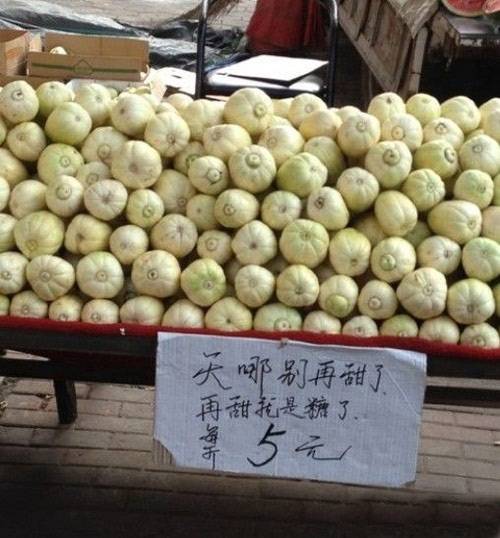 天哪别再甜了
再甜我是糖了
每斤5元